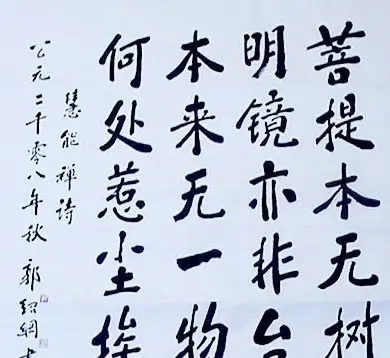 菩提本无树
明镜亦非台
本来无一物
何处惹尘埃
慧能禅诗
公元二千零八年秋 郭绍纲书